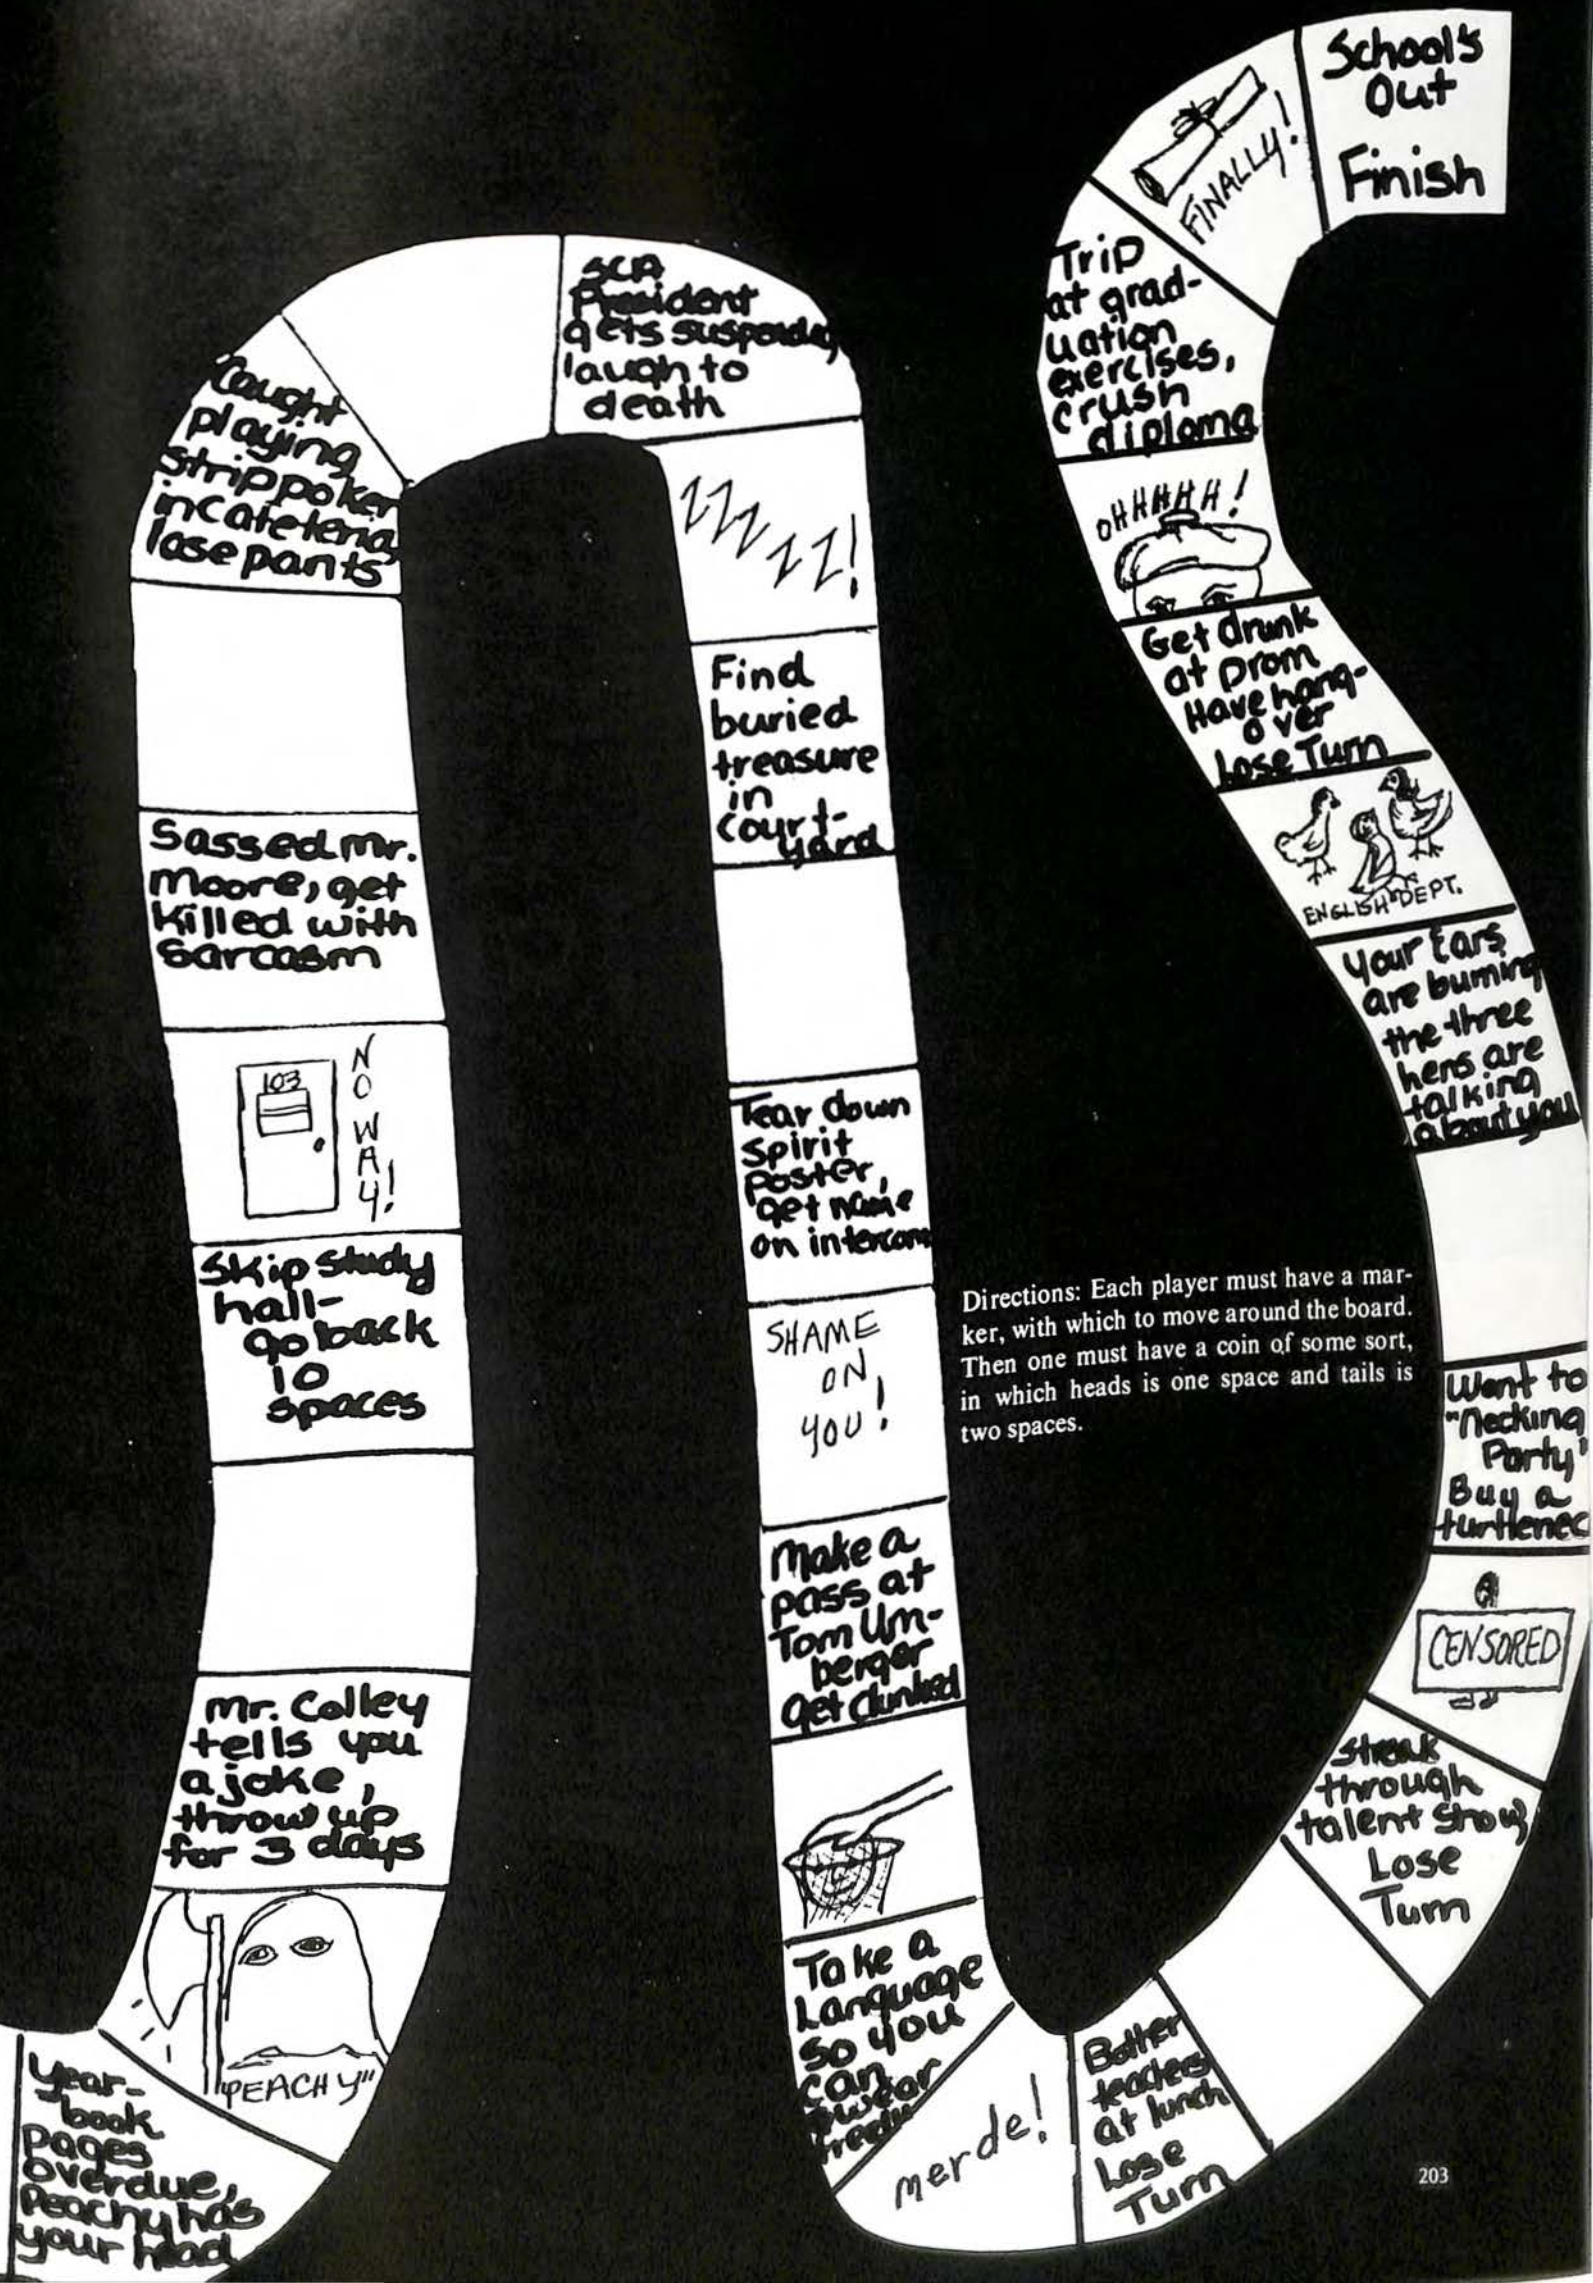 Year-
book
pages
overdue,
Peachy has
your head
"PEACHY"
Mr. Colley
tells you
a joke,
throw up
for 3 days
Skip study
hall-
go back
10
spaces
103
NO WAY!
Sassed Mr.
Moore, get
killed with
sarcasm
Caught
playing
strip poker
in cafeteria
lose pants
SCA
President
gets suspended,
laugh to
death
ZZZZZ!
Find
buried
treasure
in
court-
yard
Tear down
spirit
poster,
get name
on intercom
SHAME
ON
YOU!
Make a
pass at
Tom Um-
berger
get dunked
Take a
Language
so you
can
swear
freely
merde!
Bother
teachers
at lunch
Lose
Turn
Streak
through
talent show,
Lose
Turn
CENSORED
Went to
"Necking
Party"
Buy a
turtlenec
Your Ears
are burning
the three
hens are
talking
about you
ENGLISH DEPT.
Get drunk
at prom
Have hang-
over
Lose Turn
OHHHHH!
Trip
at grad-
uation
exercises,
crush
diploma
FINALLY!
School's
Out
Finish
Directions: Each player must have a mar-
ker, with which to move around the board.
Then one must have a coin of some sort,
in which heads is one space and tails is
two spaces.
203